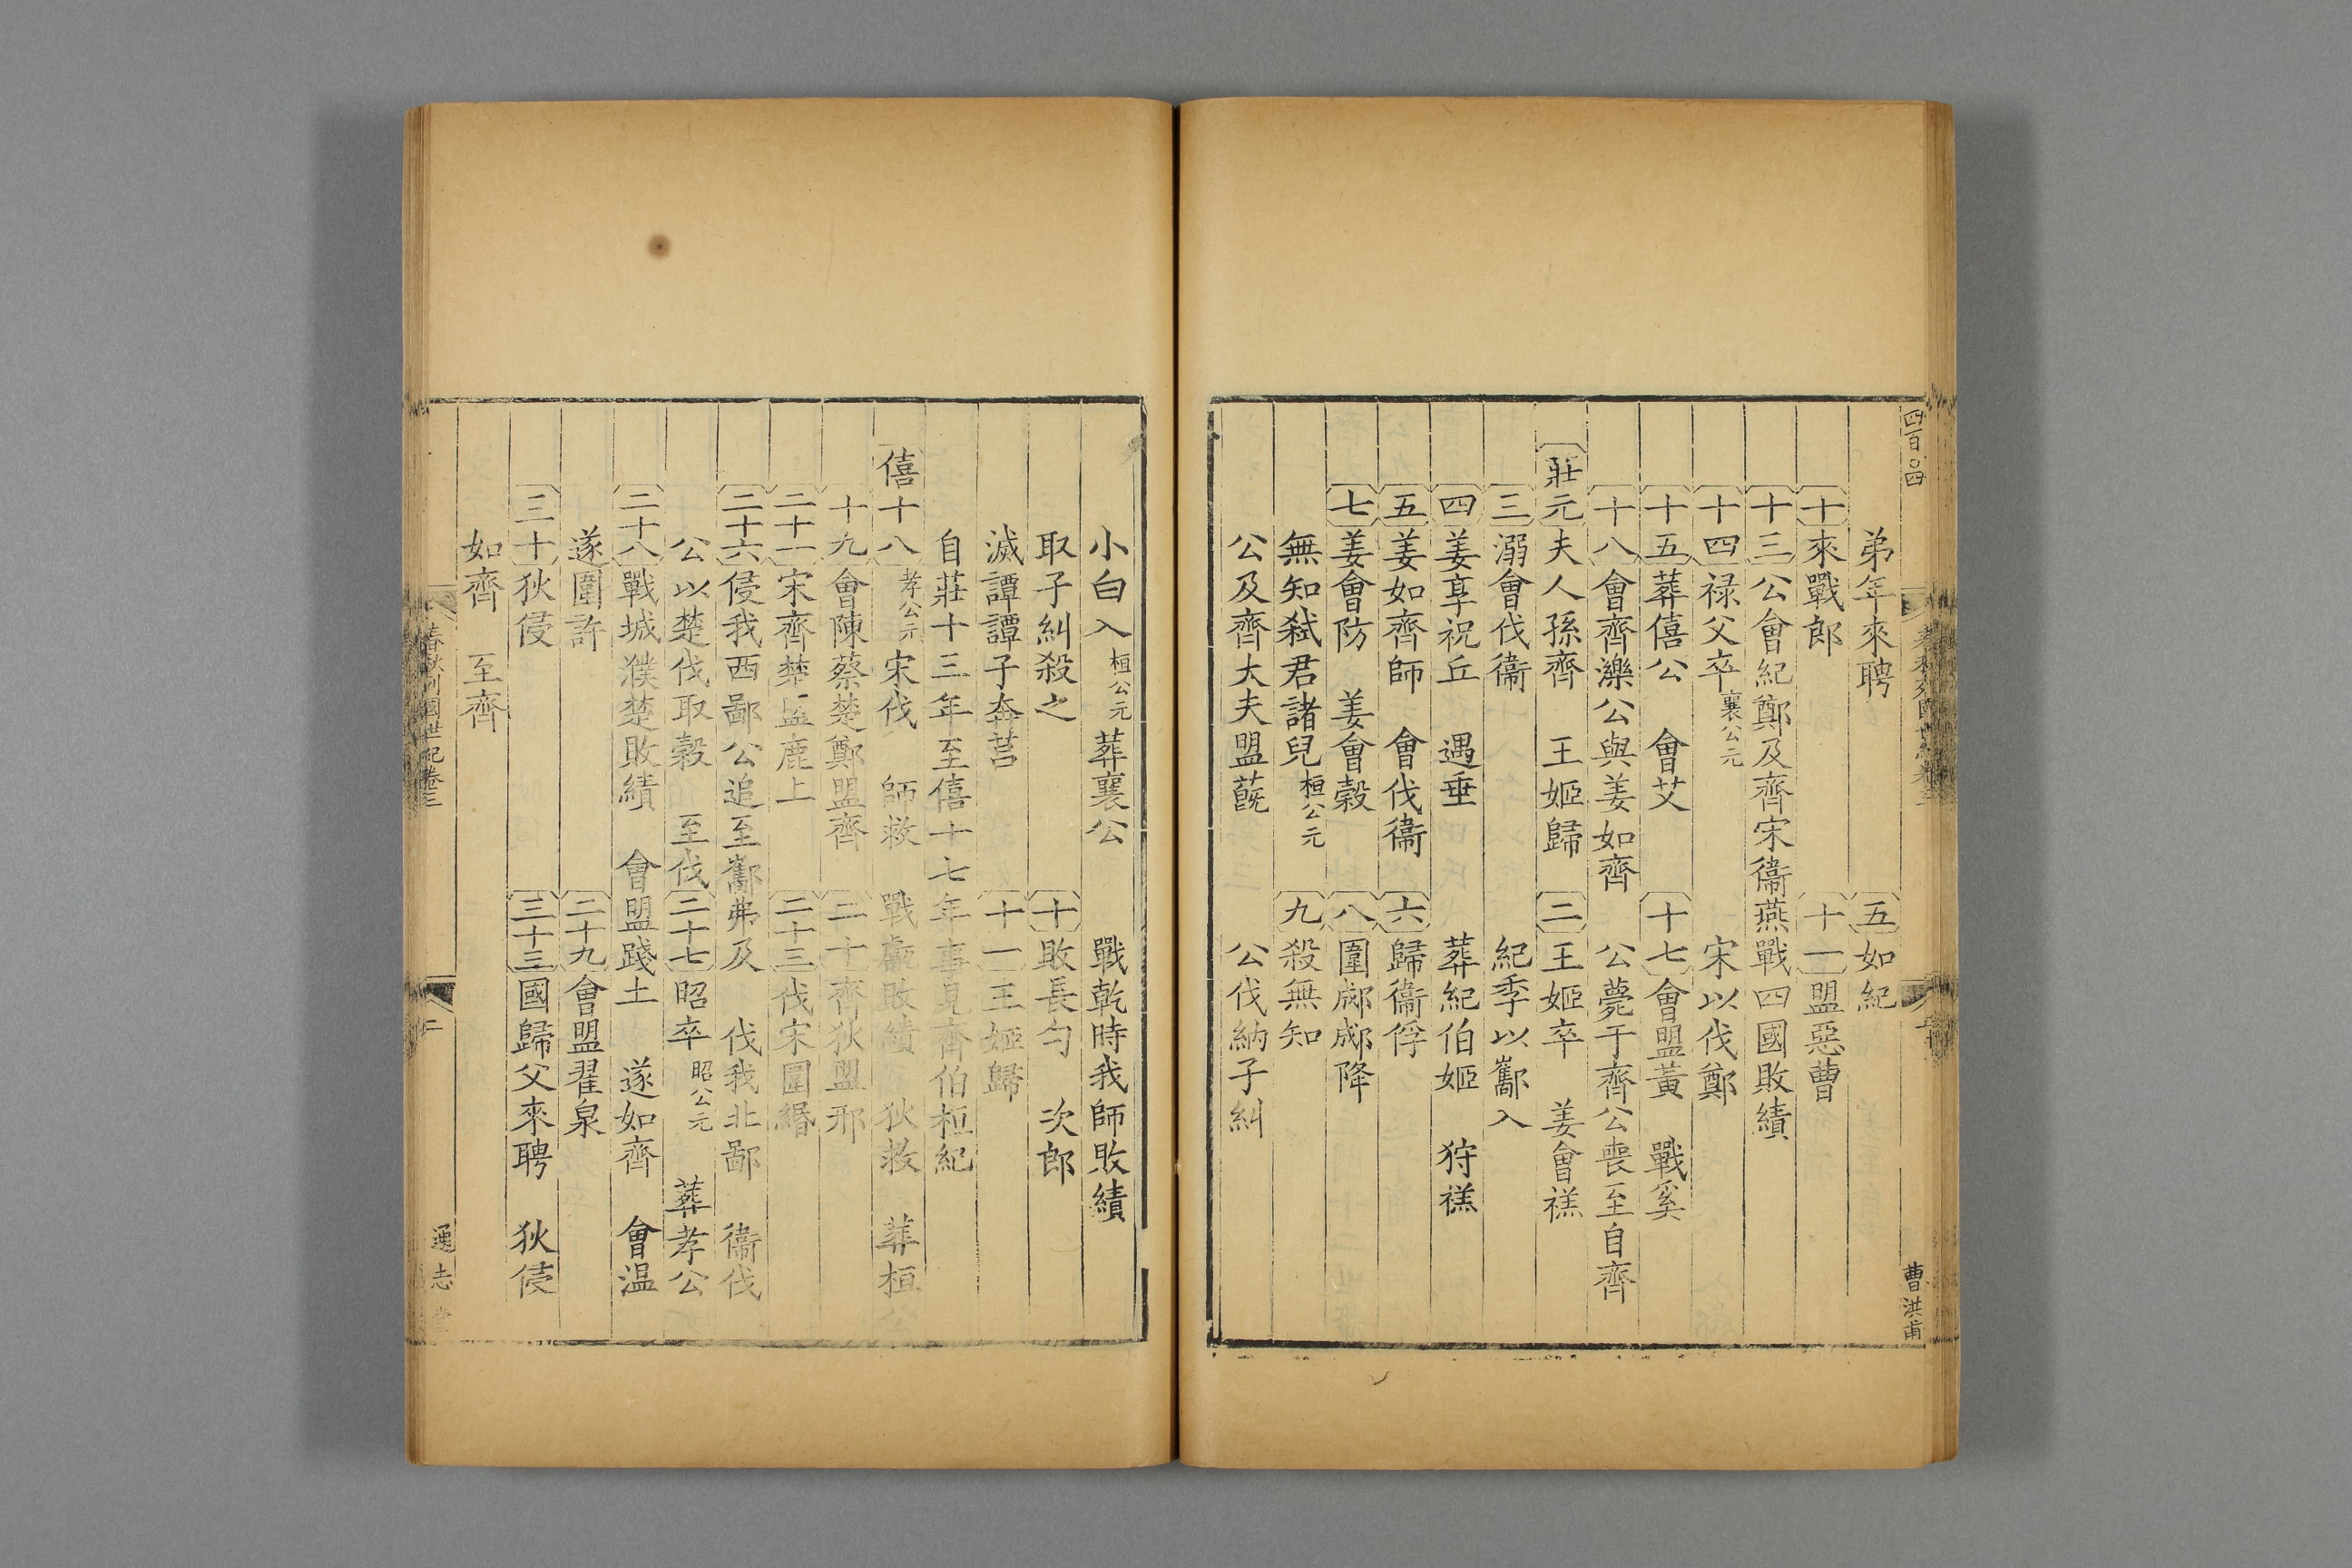 四百〇四
曹洪甫
弟年來聘 五如紀
十來戰郎 十一盟惡曹
十三公會紀鄭及齊宋衞燕戰四國敗績
十四祿父卒襄公元 宋以伐鄭
十五葬僖公 會艾 十七會盟黃 戰奚
十八會齊濼公與姜如齊 公薨于齊公喪至自齊
莊元夫人孫齊 王姬歸 二王姬卒 姜會禚
三溺會伐衞 紀季以酅入
四姜享祝丘 遇垂 葬紀伯姬 狩禚
五姜如齊師 會伐衞 六歸衞俘
七姜會防 姜會穀 八圍郕郕降
無知弒君諸兒桓公元 九殺無知
公及齊大夫盟蔇 公伐納子糾
小白入桓公元 葬襄公 戰乾時我師敗績
取子糾殺之 十敗長勺 次郎
滅譚譚子奔莒 十一王姬歸
自莊十三年至僖十七年事見齊伯桓紀
僖十八孝公元 宋伐 師救 戰甗敗績 狄救 葬桓公
十九會陳蔡楚鄭盟齊 二十齊狄盟邢
二十一宋齊楚盟鹿上 二十三伐宋圍緡
二十六侵我西鄙公追至酅弗及 伐我北鄙 衞伐
公以楚伐取穀 至伐 二十七昭卒昭公元 葬孝公
二十八戰城濮楚敗績 會盟踐土 遂如齊 會溫
遂圍許 二十九會盟翟泉
三十狄侵 三十三國歸父來聘 狄侵
如齊 至齊
春秋列國世紀卷三
二
通志堂